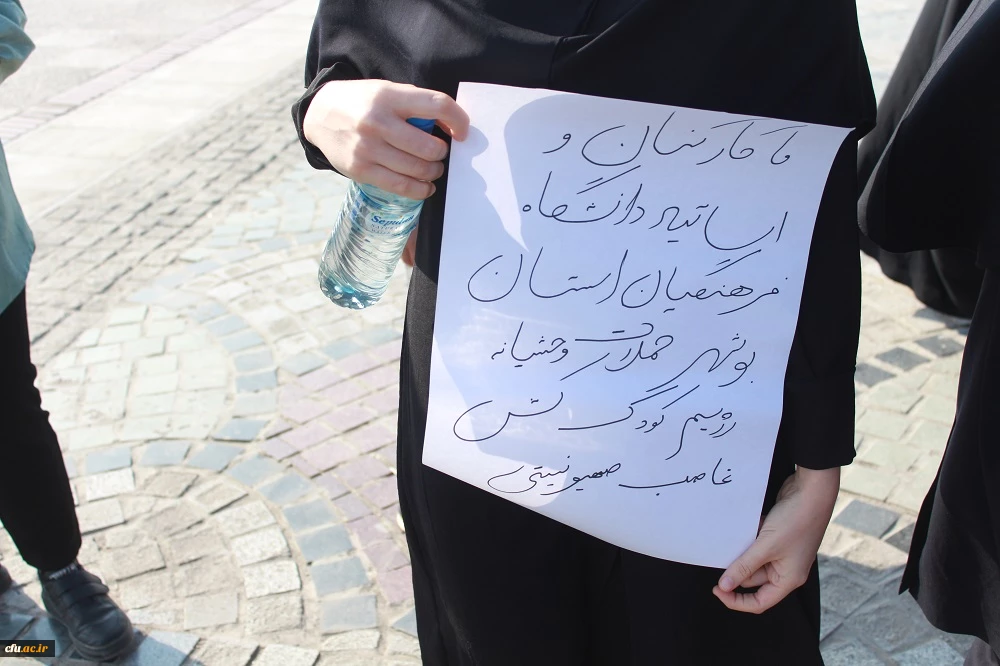 ما کارکنان و
اساتید دانشگاه
فرهنگیان استان
بوشهر حملات وحشیانه
رژیم کودک کش
غاصب صهیونیستی
Sepidan
cfu.ac.ir